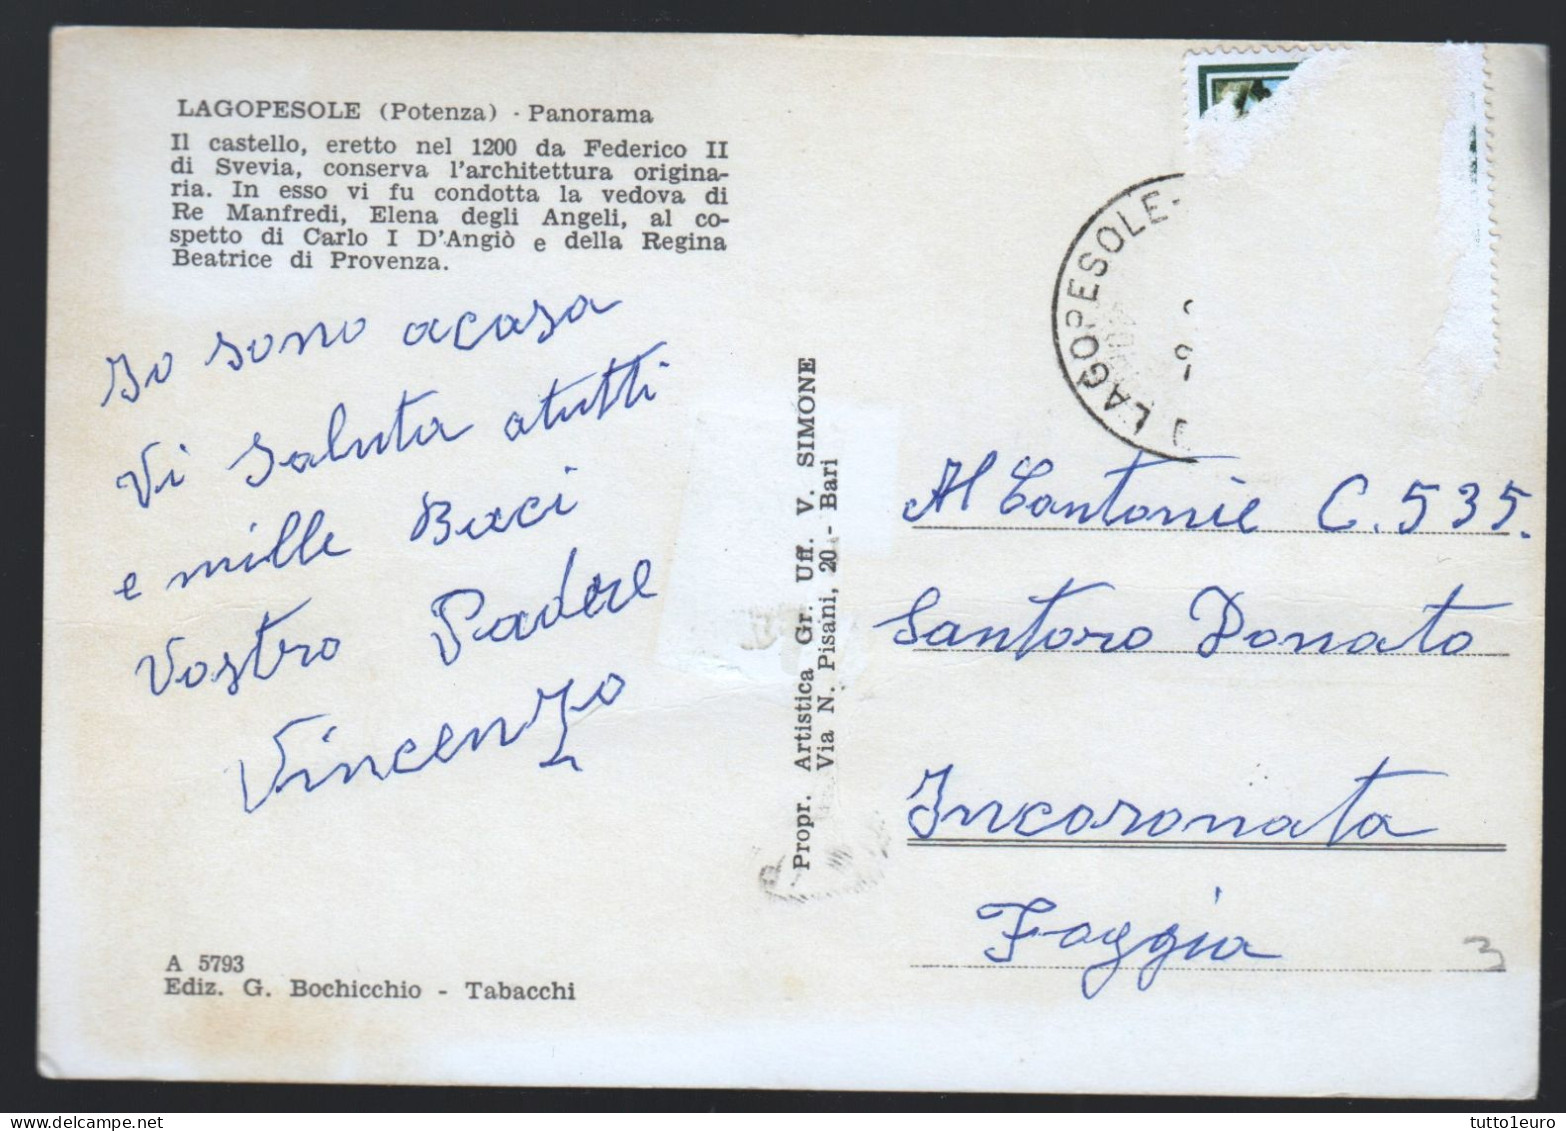 LAGOPESOLE (Potenza) - Panorama
Il castello, eretto nel 1200 da Federico II
di Svevia, conserva l'architettura origina-
ria. In esso vi fu condotta la vedova di
Re Manfredi, Elena degli Angeli, al co-
spetto di Carlo I D'Angiò e della Regina
Beatrice di Provenza.
Io sono acasa
Vi Saluta atutti
e mille Baci
Vostro Padere
Vincenzo
A 5793
Ediz. G. Bochicchio - Tabacchi
Propr. Artistica Gr. Uff. V. SIMONE
Via N. Pisani, 20 - Bari
LAGOPESOLE-
Al Cantonie C. 535.
Santoro Donato
Incoronata
Foggia
3
tutto1euro